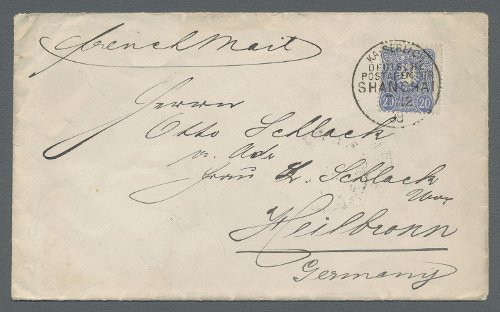 French Mail
KAISERLICH
DEUTSCHE
POSTAGENTUR
SHANGHAI
18
20 20
Herrn
Otto Schlack
p. Adr.
Frau L. Schlack
Wwe
Heilbronn
Germany